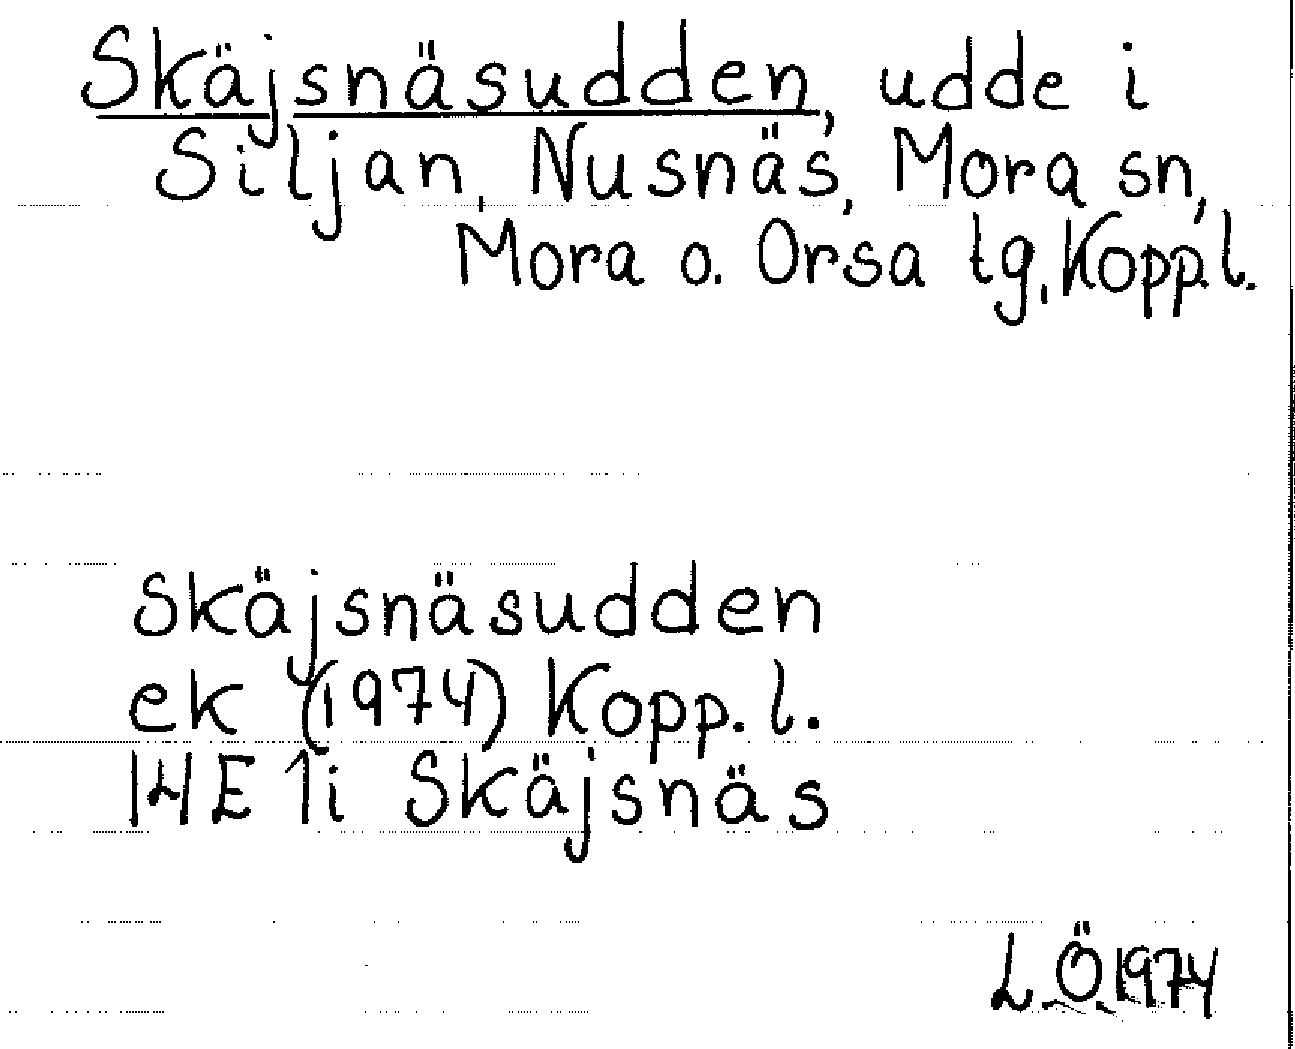 Skäjsnäsudden, udde i
Siljan, Nusnäs, Mora sn,
Mora o. Orsa tg, Kopp.l.
Skäjsnäsudden
ek (1974) Kopp. l.
14E 1i Skäjsnäs
L.Ö. 1974